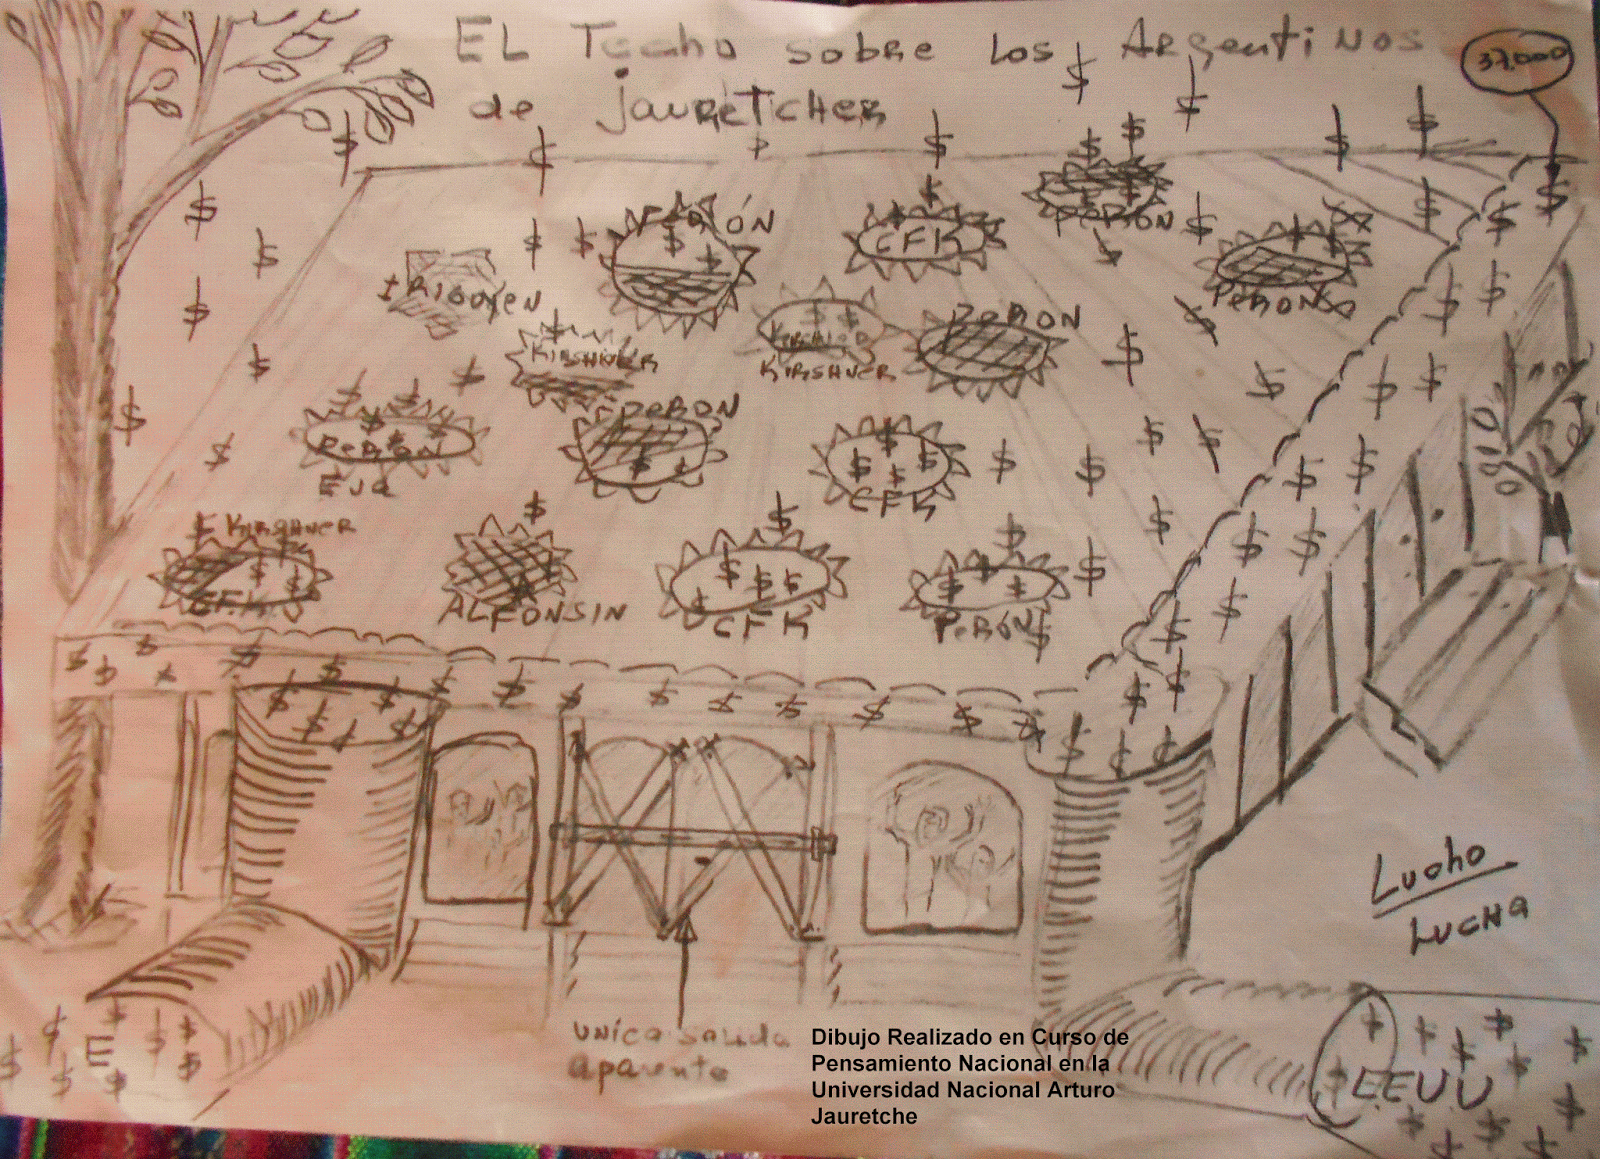 EL Techo sobre los ArgentiNos
de jaureTcheR
37.000
PERÓN
CFK
PeRON
IRIGOYEN
PeRON
PeRON
KIRSHNER
KIRSHNER
PeRON
PeRON
Eva
CFK
KIRSHNER
CFK
ALFONSIN
CFK
PeRÓN
Lucho
LUCHA
UNICA SALIDA
Aparente
Dibujo Realizado en Curso de
Pensamiento Nacional en la
Universidad Nacional Arturo
Jauretche
E
EEUU